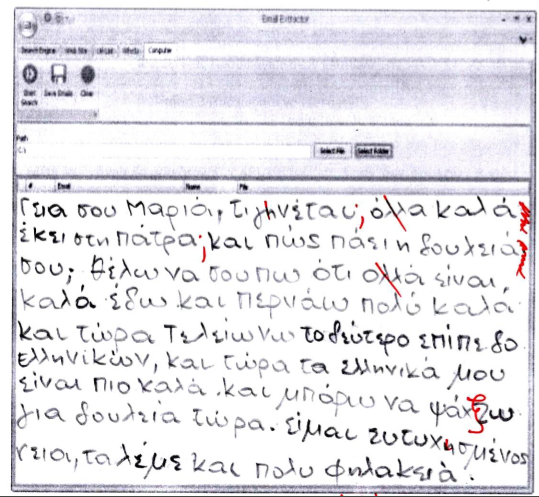 Email Extractor
Search Engine Web Site Url List Computer
Start Save Emails Clear
Search
Path
C:\
Select File Select Folder
# Email Name File
Γεια σου Μαριά, τι γηνέται; όλλα καλά
έκει στη πάτρα; και πώς πάει η δουλειά
σου; θέλω να σου πω ότι ολλά είναι,
καλά έδω και περνάω πολύ καλά
και τώρα τελείωνω το δεύτερο επίπεδο
ελληνικών, και τώρα τα ελληνικά μου
είναι πιο καλά. και μπόρω να ψάχξω
για δουλεία τώρα. είμαι ευτυχισμένος
γειαι, τα λέμε και πολυ φηλακειά.